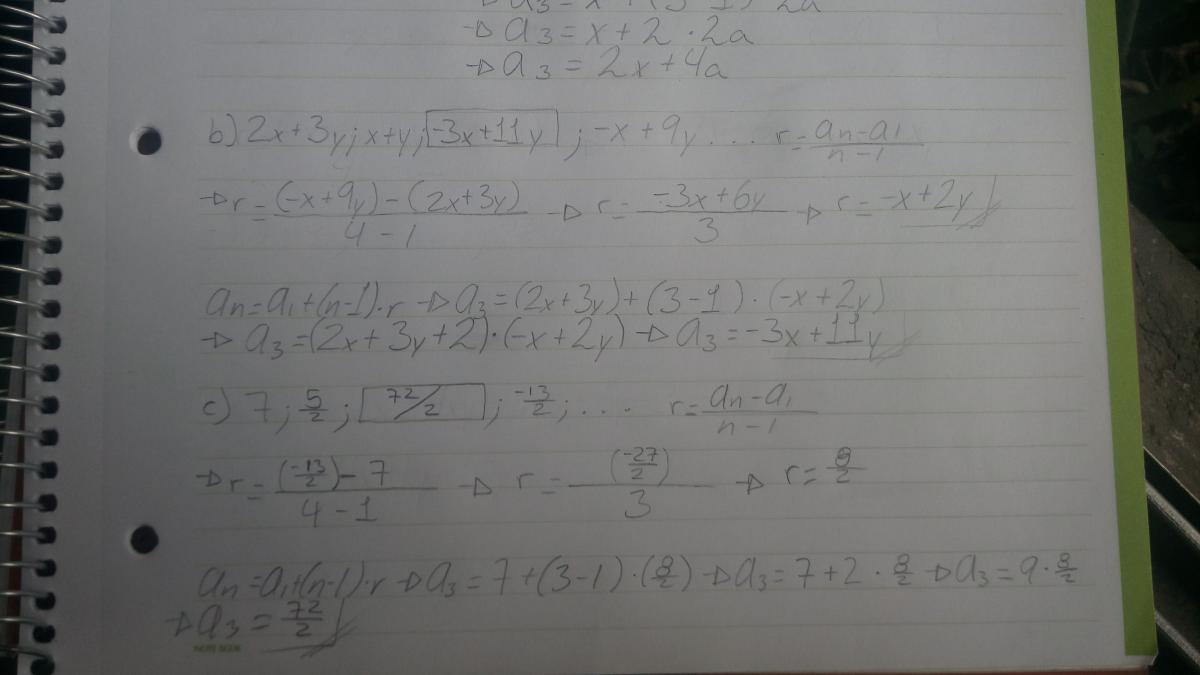 → a3 = x + (3-1) · 2a
→ a3 = x + 2 · 2a
→ a3 = 2x + 4a
b) 2x+3y; x+y; -3x+11y ; -x + 9y ... r = an-a1/n-1
→ r = (-x+9y) - (2x+3y)/4-1 → r = -3x+6y/3 → r = -x+2y
an = a1+(n-1)·r → a3 = (2x+3y)+(3-1)·(-x+2y)
→ a3 = (2x+3y+2)·(-x+2y) → a3 = -3x+11y
c) 7; 5/2; 72/2 ; -13/2; ... r = an-a1/n-1
→ r = (-13/2) - 7/4-1 → r = (-27/2)/3 → r = 8/2
an = a1+(n-1)·r → a3 = 7+(3-1)·(8/2) → a3 = 7+2·8/2 → a3 = 9·8/2
→ a3 = 72/2
NOTE BOOK